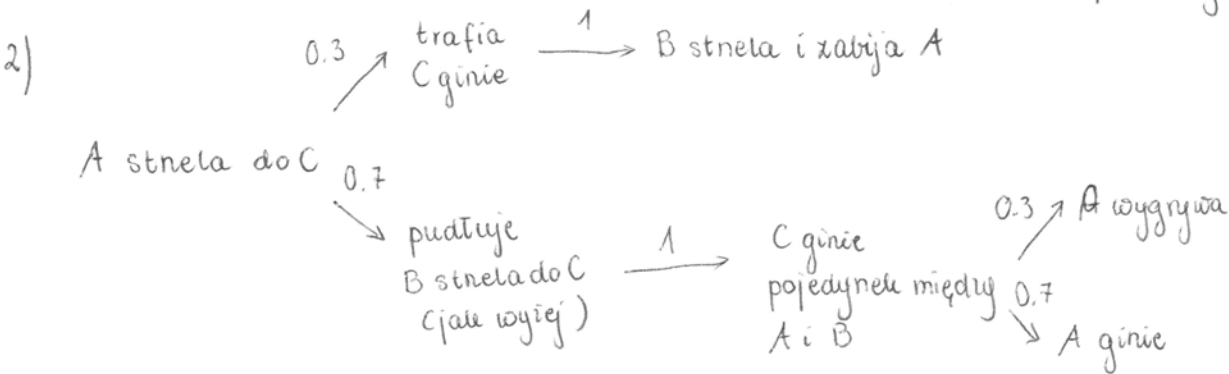 2)
0.3
trafia
C ginie
1
B strzela i zabija A
A strzela do C
0.7
pudłuje
B strzela do C
(jak wyżej)
1
C ginie
pojedynek między
A i B
0.3
A wygrywa
0.7
A ginie